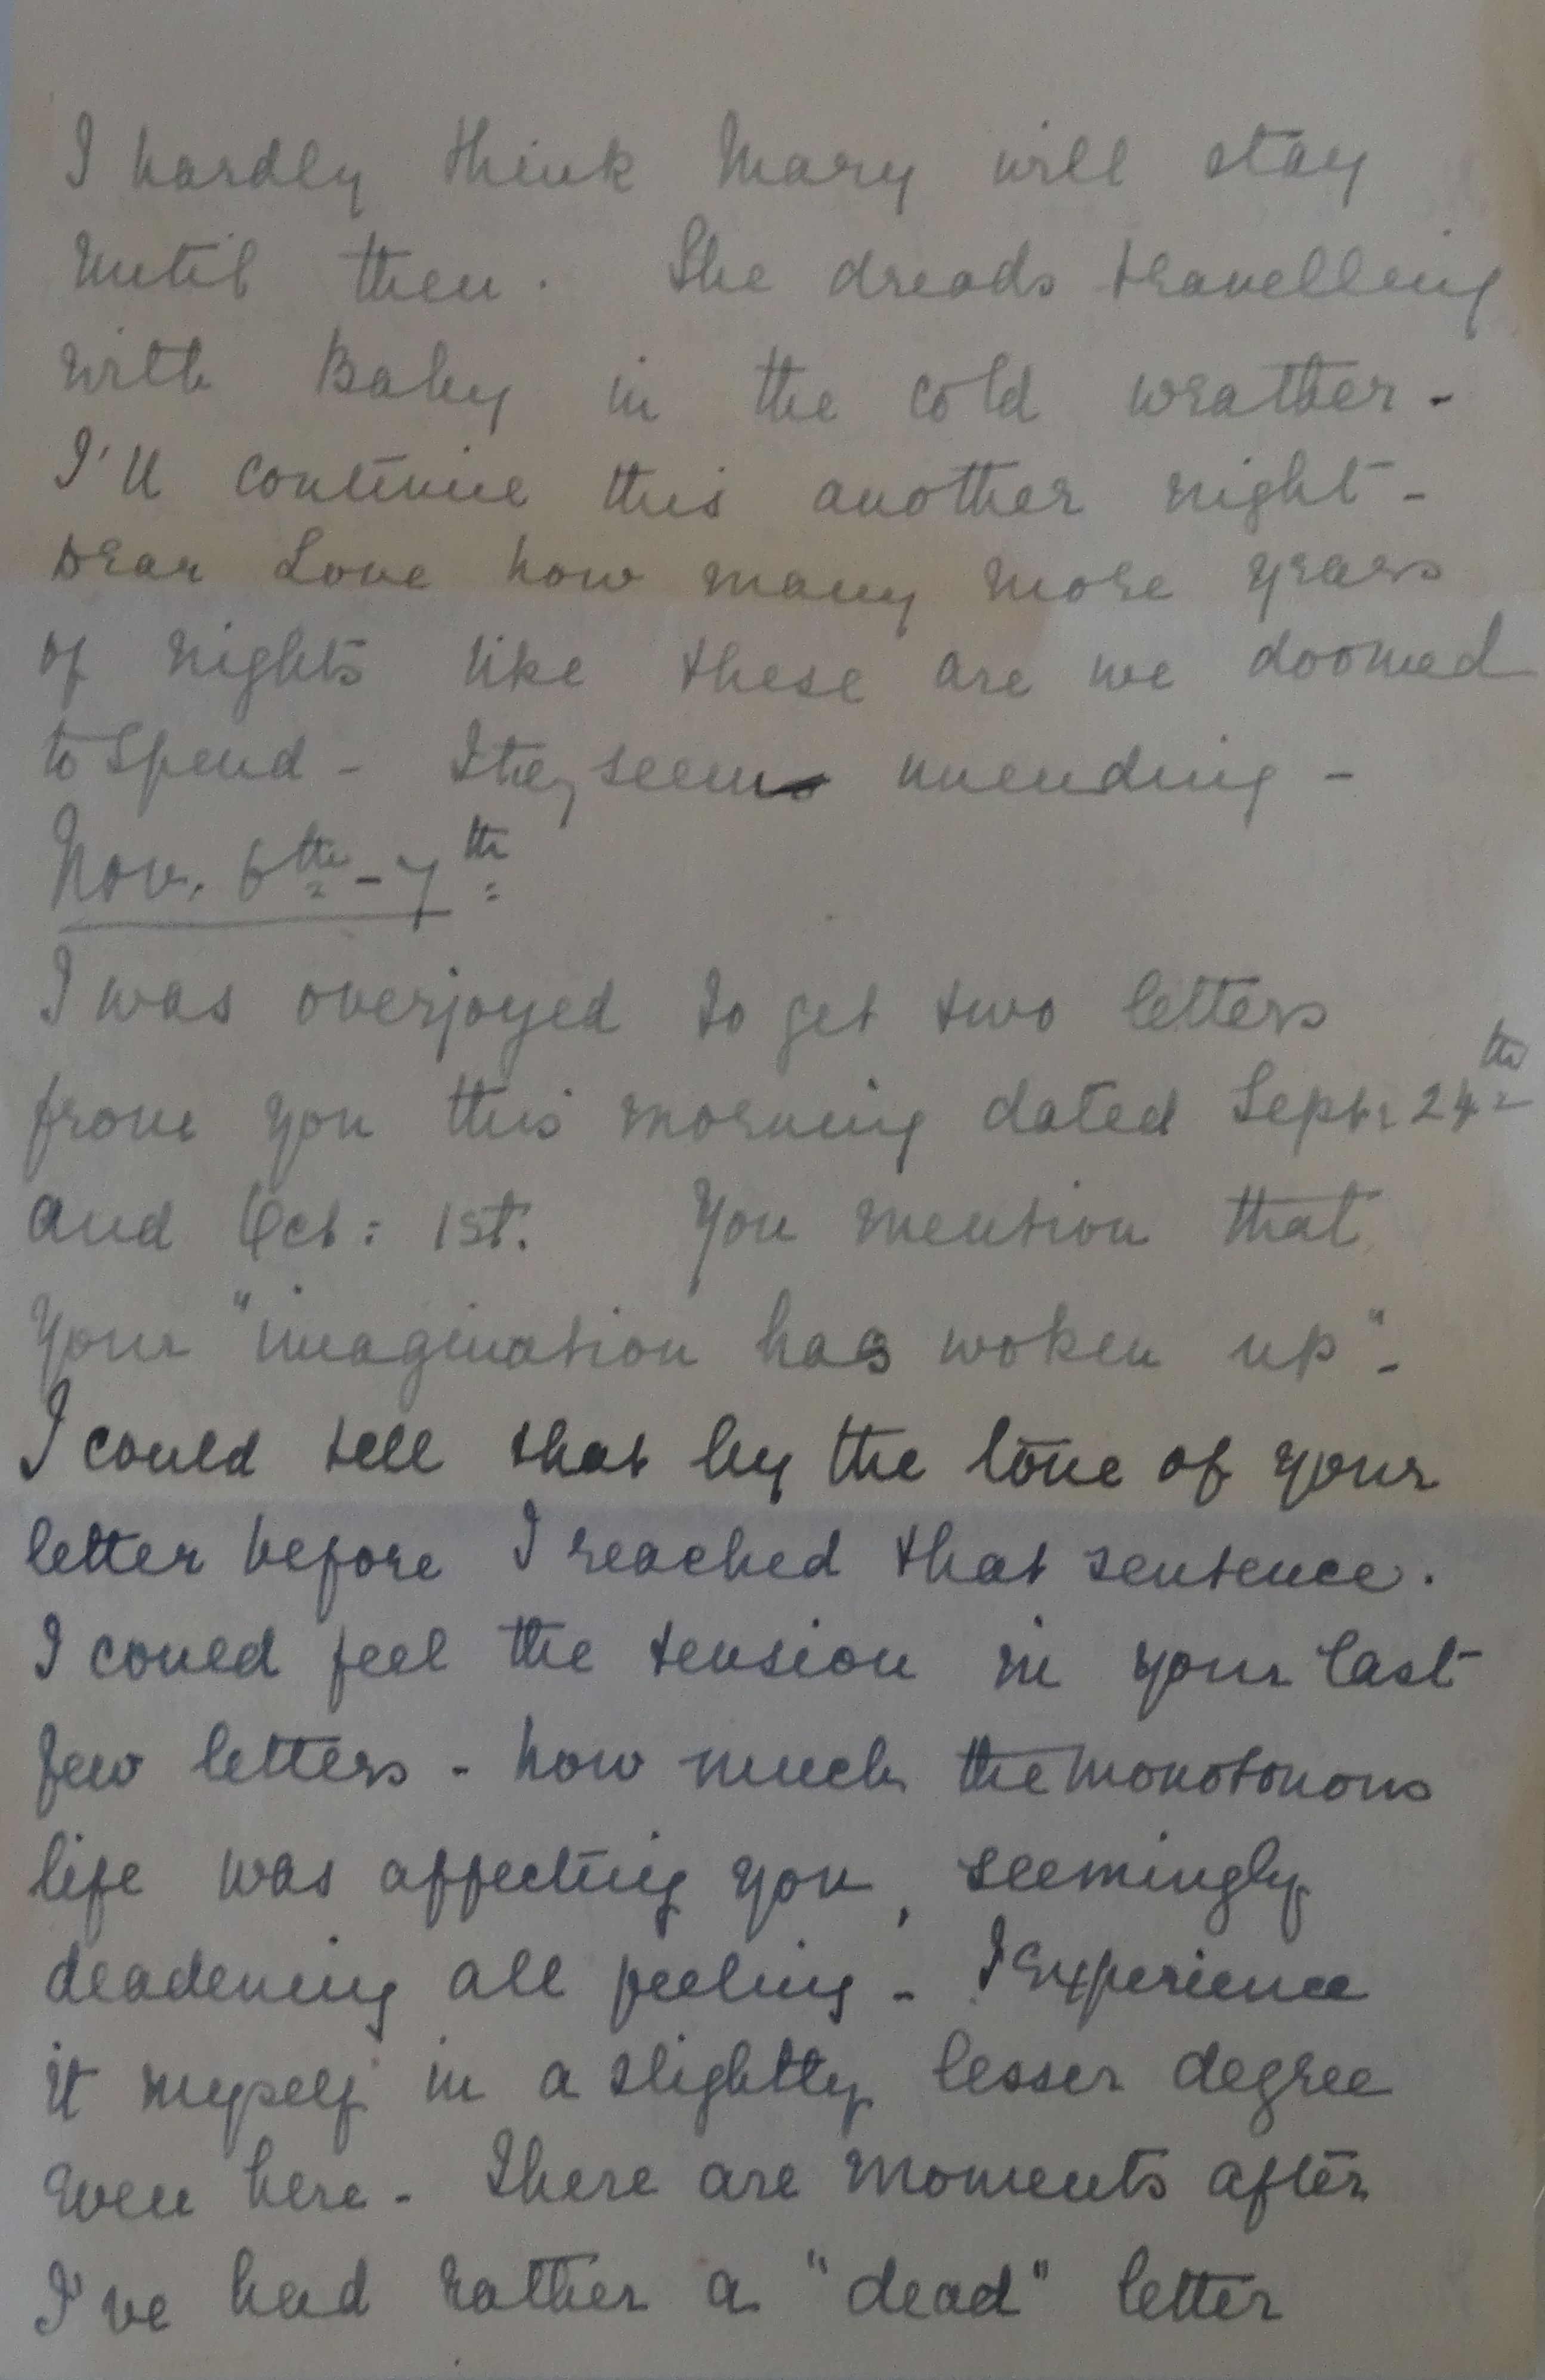 I hardly think Mary will stay
until then. She dreads travelling
with Baby in the cold weather -
I'll continue this another night -
Dear Love how many more years
of nights like these are we doomed
to spend - they seem unending -
Nov. 6th - 7th
I was overjoyed to get two letters
from you this morning dated Sept: 24th
and Oct: 1st. You mention that
your "imagination has woken up" -
I could tell that by the tone of your
letter before I reached that sentence.
I could feel the tension in your last
few letters - how much the monotonous
life was affecting you, seemingly
deadening all feeling - I experience
it myself in a slightly lesser degree
even here - There are moments after
I've had rather a "dead" letter